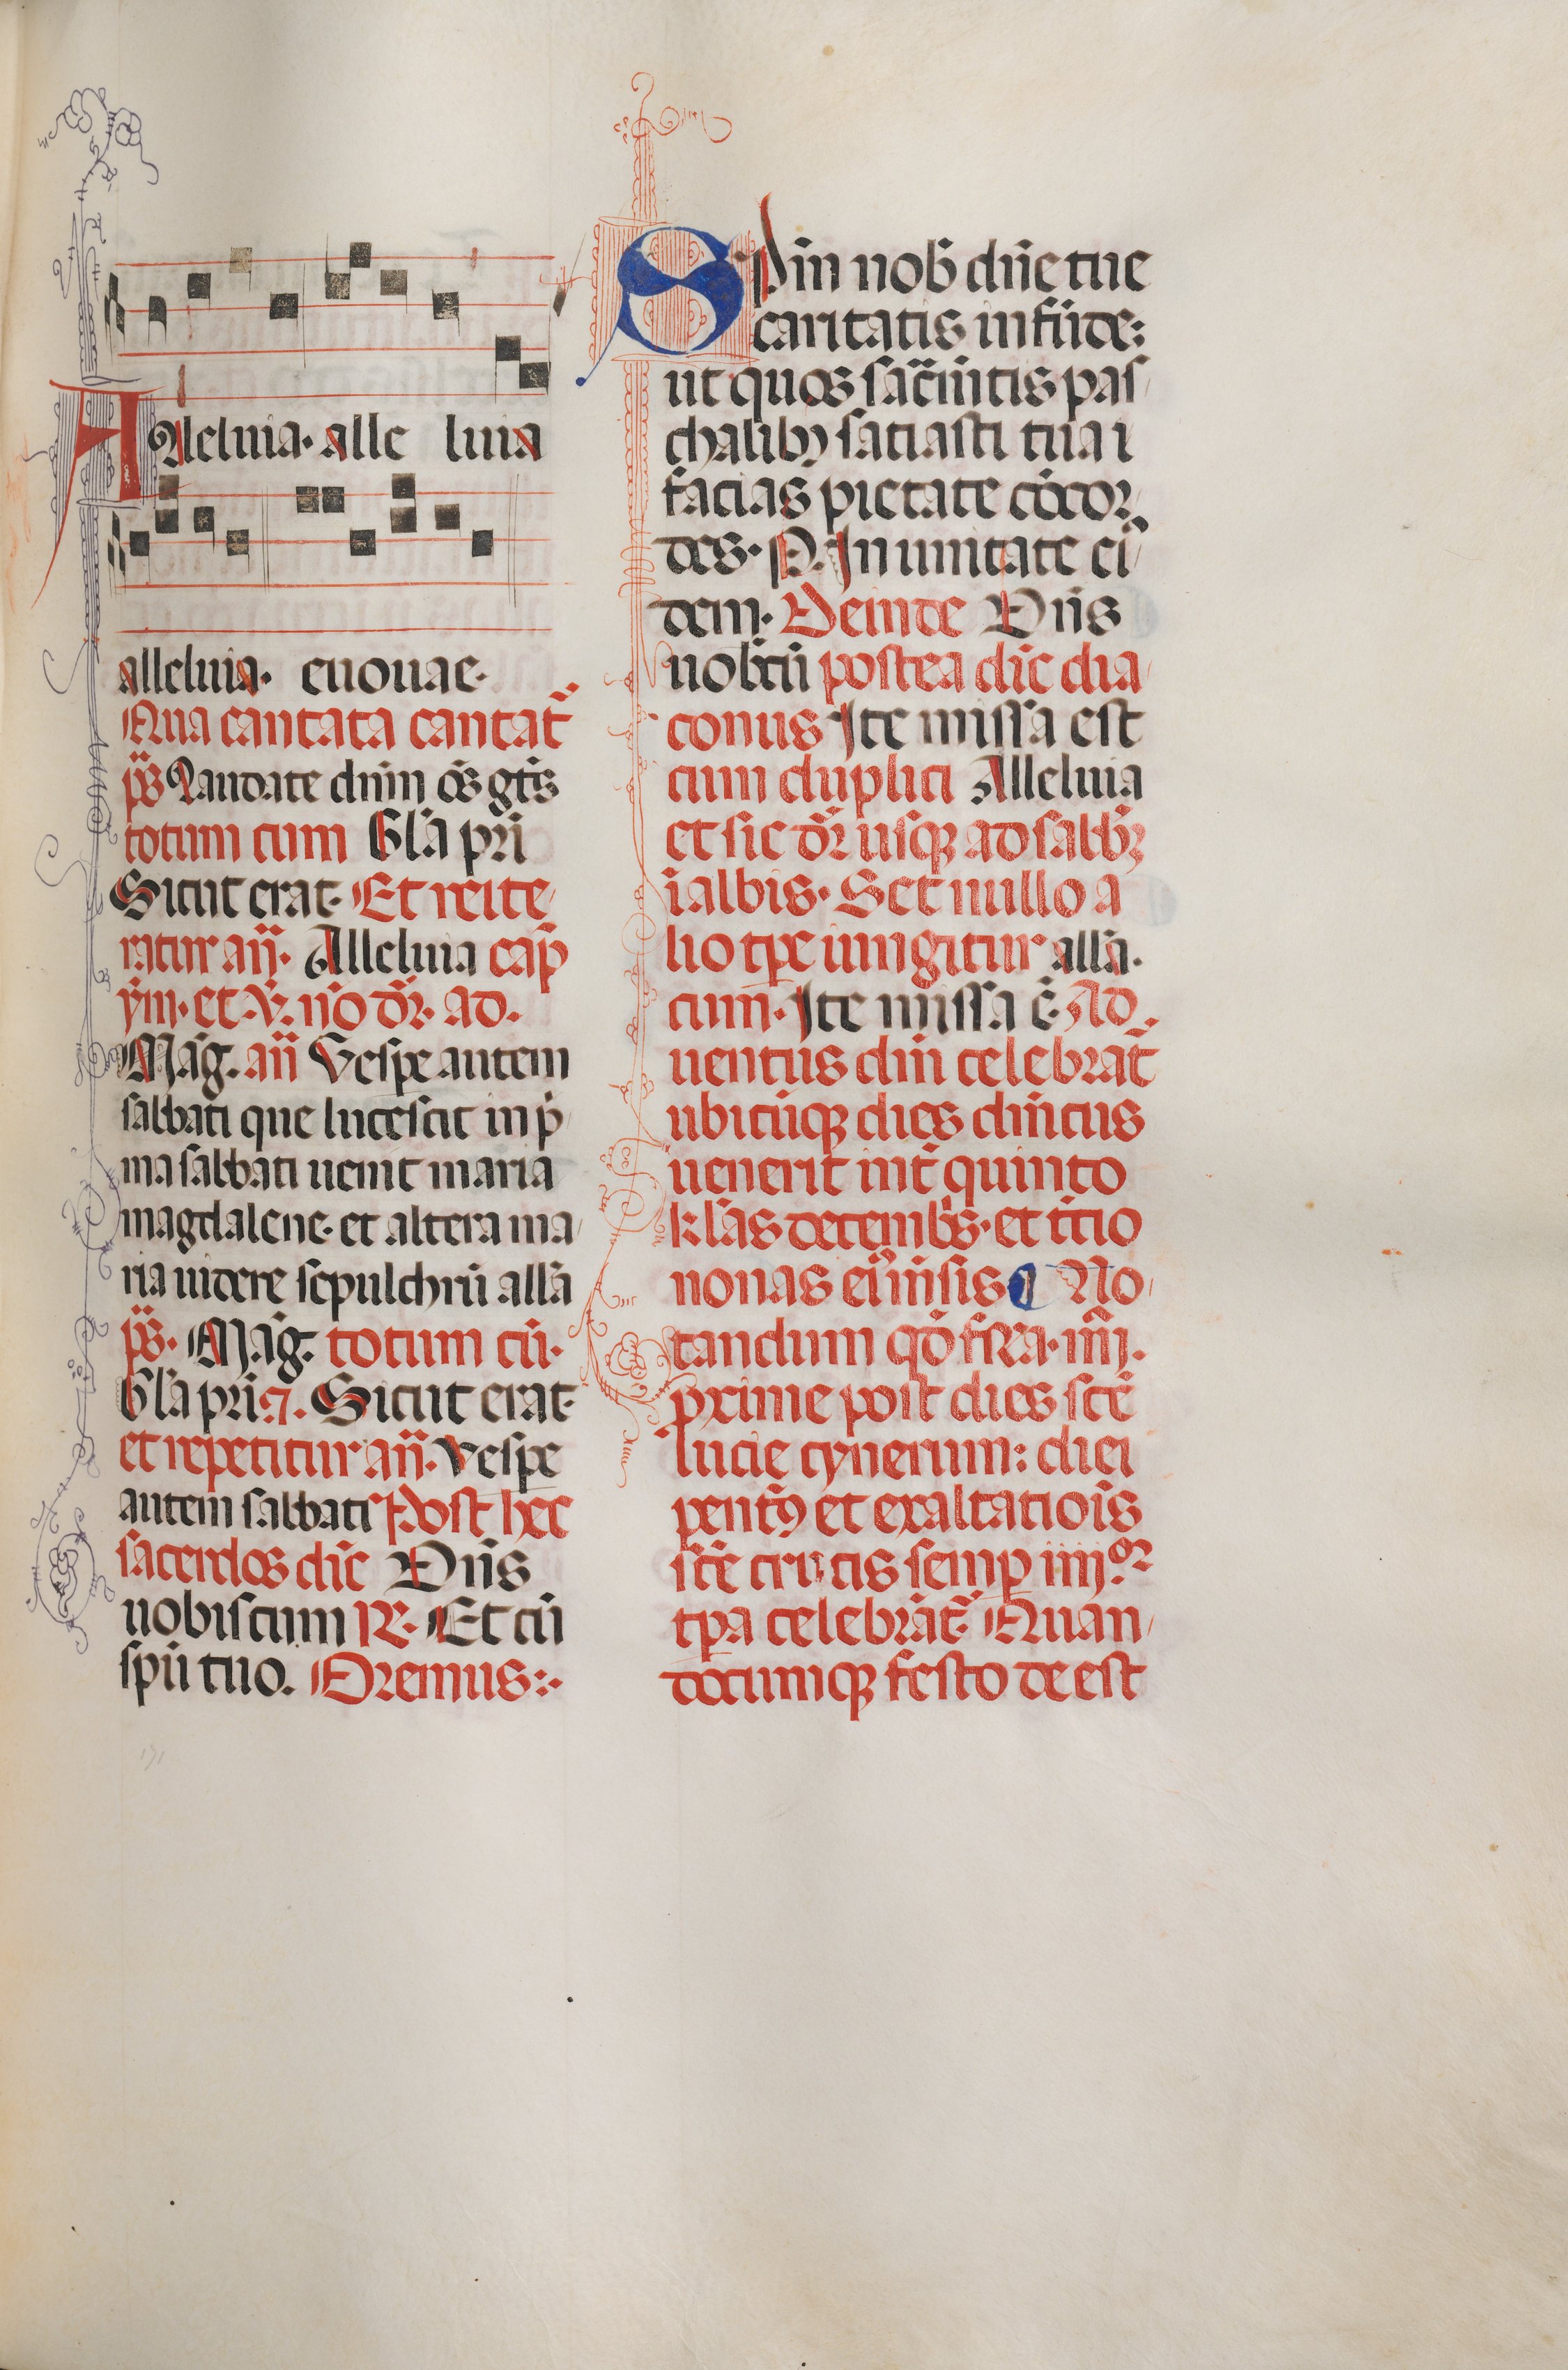 Alleluia· alle luia
alleluia· euouae·
Qua cantata cantat̃
p̃s Laudate dñm õs gẽts
totum cum Gl̃a pr̃i
Sicut erat· Et reite
ratur añ· Alleluia cap̃
ỹm· et V̂· nõ dr̃· ad·
Mag̃· añ Vespe autem
sabbati que lucescit in p̃
ma sabbati uenit maria
magdalene· et altera ma
ria uidere sepulchrũ allã
p̃s· Mag̃· totum cũ·
Gl̃a pr̃i ⁊· Sicut erat·
et repetitur añ· Vespe
autem sabbati Post hec
sacerdos dic̃ Dñs
uobiscum ℟· Et cũ
spũ tuo. Oremus:·
Spm̃ nob̃ dñe tue
caritatis infũde:
ut quos sac̃m̃tis pas
chalibꝫ satiasti tua ĩ
facias pietate cõcor
des· P. In unitate ei
dem· Deinde Dñs
uob̃cũ postea dic̃ dia
conus Ite missa est
cum duplici Alleluia
et sic dr̃ usqꝫ ad sabbꝫ
ĩ albis· Set nullo a
lio tp̃e iungitur all̃a·
cum· Ite missa ẽ· Ad
uentus dñi celebrat̃
ubicũqꝫ dies dñicus
uenerit int̃ quinto
kl̃as decemb̃s· et t̃cio
nonas eĩ m̃sis ¶ No
tandum qď fẽra· iiij·
prime post dies sc̃e
lucie cynerum: diei
pent̃ꝯ et exaltatiõis
sc̃e crucis semp̱ iiijᵒʳ
tp̃a celebrãt̃· Quan
documqꝫ festo deest